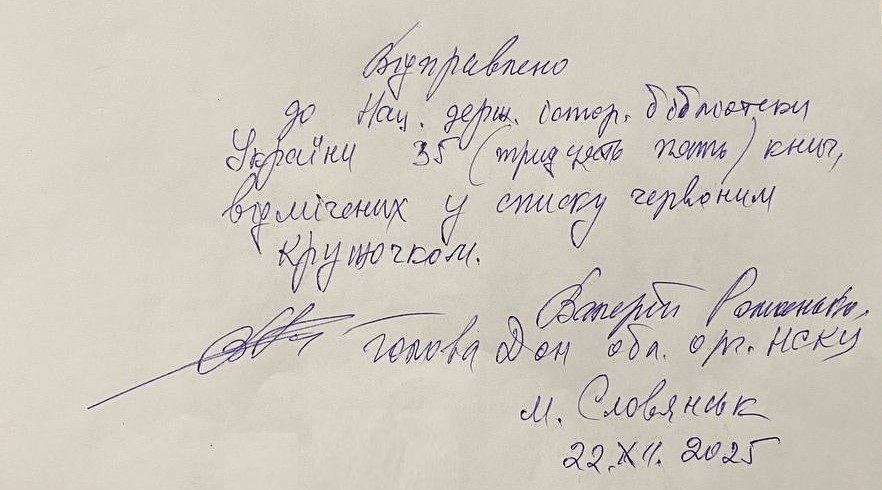 Відправлено
до Нац. держ. істор. бібліотеки
України 35 (тридцять пять) книг,
відмічених у списку червоним
крущочком.
Валерій Романько,
голова Дон обл. орг. НСКУ
м. Словянськ
22.XII. 2025